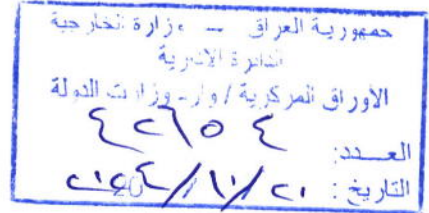 جمهورية العراق – وزارة الخارجية
الدائرة الادارية
الأوراق المركزية / وارد وزارات الدولة
العـــدد: ٤٢٦٥٤
التاريخ: ٢٠٢٤/١٠/٢١